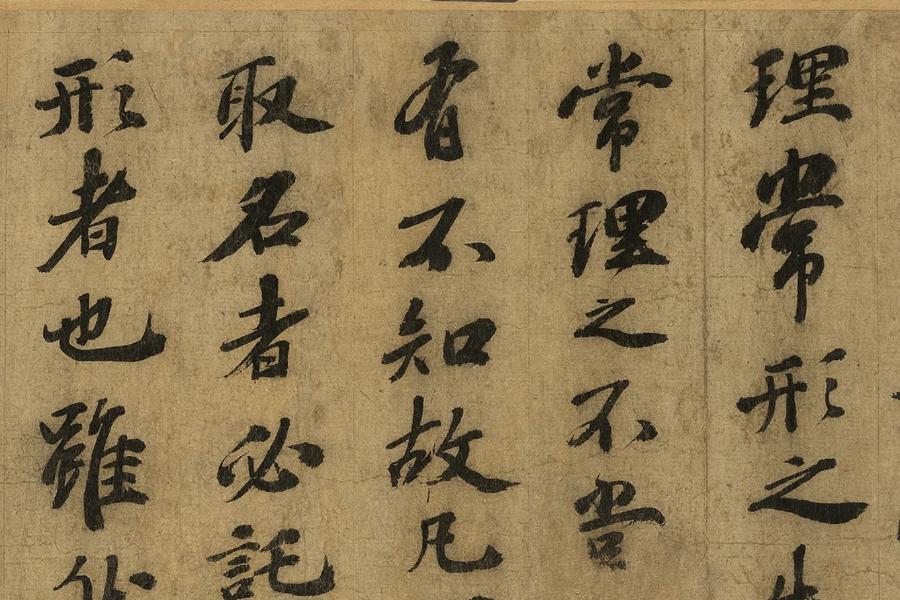 理常形之
常理之不當
有不知故凡
取名者必託
形者也雖